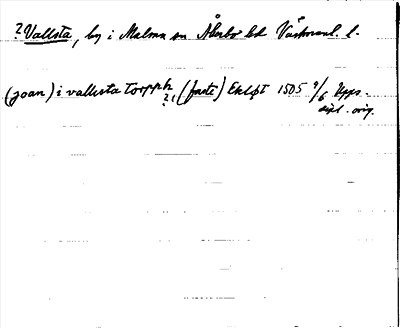 ? Vallsta, by i Malma sn Åkerbo hd Västmanl. l.
(joan) i vallista torpph (faste) Eklöt 1505 9/6 Upps.
? ,
dipl. orig.